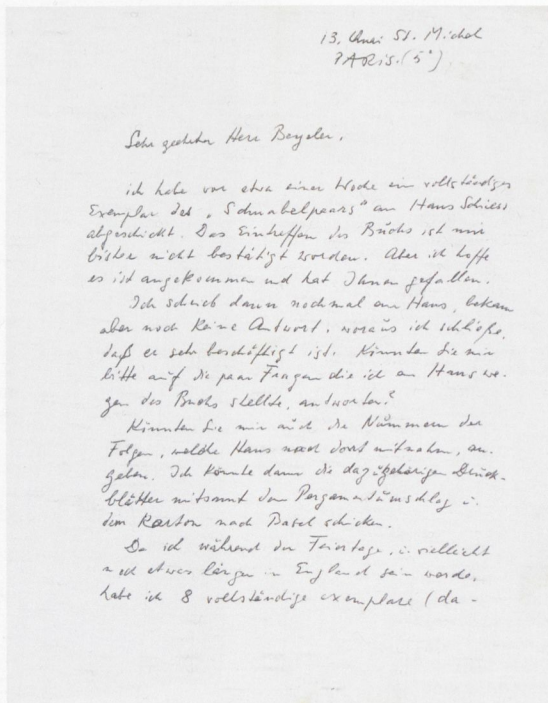 13. Quai St. Michel
PARIS. (5e)
Sehr geehrter Herr Beyeler,
ich habe vor etwa einer Woche ein vollständiges
Exemplar des „Schnabelpaars" an Hans Schiess
abgeschickt. Das Eintreffen des Buchs ist mir
bisher nicht bestätigt worden. Aber ich hoffe
es ist angekommen und hat Ihnen gefallen.
Ich schrieb dann nochmal an Hans, bekam
aber noch keine Antwort, woraus ich schließe,
daß er sehr beschäftigt ist. Könnten Sie mir
bitte auf die paar Fragen die ich an Hans we-
gen des Buchs stellte, antworten?
Könnten Sie mir auch die Nummern der
Folgen, welche Hans noch dort mitnahm, an-
geben. Ich könnte dann die dazugehörigen Druck-
blätter mitsamt dem Pergamentumschlag u.
dem Karton nach Basel schicken.
Da ich während der Feiertage, u. vielleicht
noch etwas länger in England sein werde,
habe ich 8 vollständige exemplare (da-